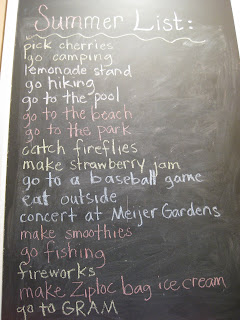 Summer List:
pick cherries
go camping
lemonade stand
go hiking
go to the pool
go to the beach
go to the park
catch fireflies
make strawberry jam
go to a baseball game
eat outside
concert at Meijer Gardens
make smoothies
go fishing
fireworks
make Ziploc bag ice cream
go to GRAM